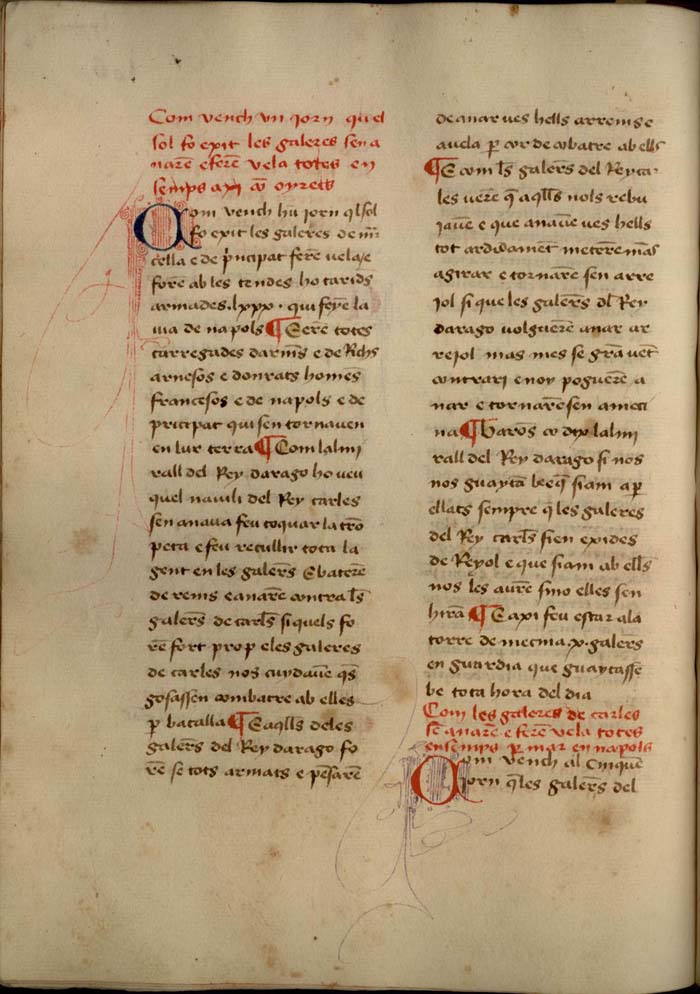 Com vench vn iorn quel
sol fo exit les galeres sen a
narē e ferē vela totes en
semps axi cō oyrets
Com vench hū iorn q̄l sol
fo exit les galeres de m̄r
cella e de p̄ncipat ferē uela / e
forē ab les tendes ho tarids
armades .lxxx. qui feyē la
uia de napols ¶ E erē totes
carregades darm̄s e de Richs
arnesos e donrats homēs
francesos e de napols e de
pricipat qui sen tornauen
en lur terra ¶ Com lalmi
rall del Rey darago ho ueu
quel nauili del Rey carles
sen anaua feu toquar la trō
peta e feu recullir tota la
gent en les galer̄s E baterē
de rems e anarē contra l̄s
galer̄s de carl̄s si quels fo
rē fort prop e les galeres
de carles nos cuydauē q̄s
gosassen combatre ab elles
p̄ batalla ¶ E aq̄ll̄s deles
galer̄s del Rey darago fo
rē se tots armats e pēsarē
de anar ues hells arrems e
auela p̄ cor de cōbatre ab ell̄s
¶ E com l̄s galer̄s del Rey car
les uerē q̄ aq̄ll̄s nols rebu
iauē e que anauē ues hells
tot ardidamēt meterē mās
agirar e tornarē sen arre
iol si que les galer̄s dl̄ Rey
darago uolguerē anar ar
reiol mas mes se grā uēt
contrari e noy poguerē a
nar e tornarē sen a meci
na ¶ Barōs cō dix lalmi
rall del Rey darago si nos
nos guaytā be e q̄ siam ap̄
ellats sempre q̄ les galeres
del Rey carl̄s sien exides
de Reyol e que siam ab ell̄s
nos les aurē sino elles sen
hirā ¶ E axi feu estar a la
torre de mecina .x. galer̄s
en guardia que guaytassē
be tota hora del dia
Com les galeres de carles
sē anarē e ferē vela totes
ensemps p̄ mar en napols
Com vench al Cinquē
iorn q̄ les galer̄s del